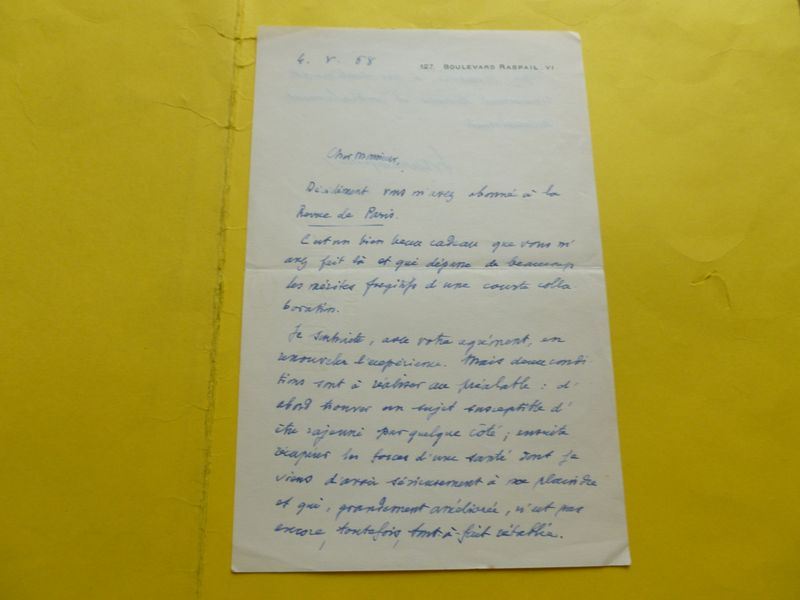 4. V. 58
127, BOULEVARD RASPAIL. VI
Cher Monsieur,
Décidément vous m'avez abonné à la
Revue de Paris.
C'est un bien beau cadeau que vous m'
avez fait là et qui dépasse de beaucoup
les mérites fugitifs d'une courte colla
boration.
Je souhaite, avec votre agrément, en
renouveler l'expérience. Mais deux condi
tions sont à réaliser au préalable : d'
abord trouver un sujet susceptible d'
être rajeuni par quelque côté ; ensuite
récupérer les forces d'une santé dont je
viens d'avoir sérieusement à me plaindre
et qui, grandement améliorée, n'est pas
encore, toutefois, tout-à-fait rétablie.